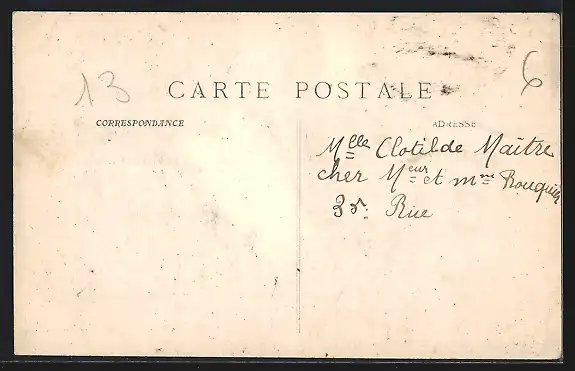 13
6
CARTE POSTALE
CORRESPONDANCE
ADRESSE
Mlle Clotilde Maître
cher Meur et mme Rouquier
35. Rue